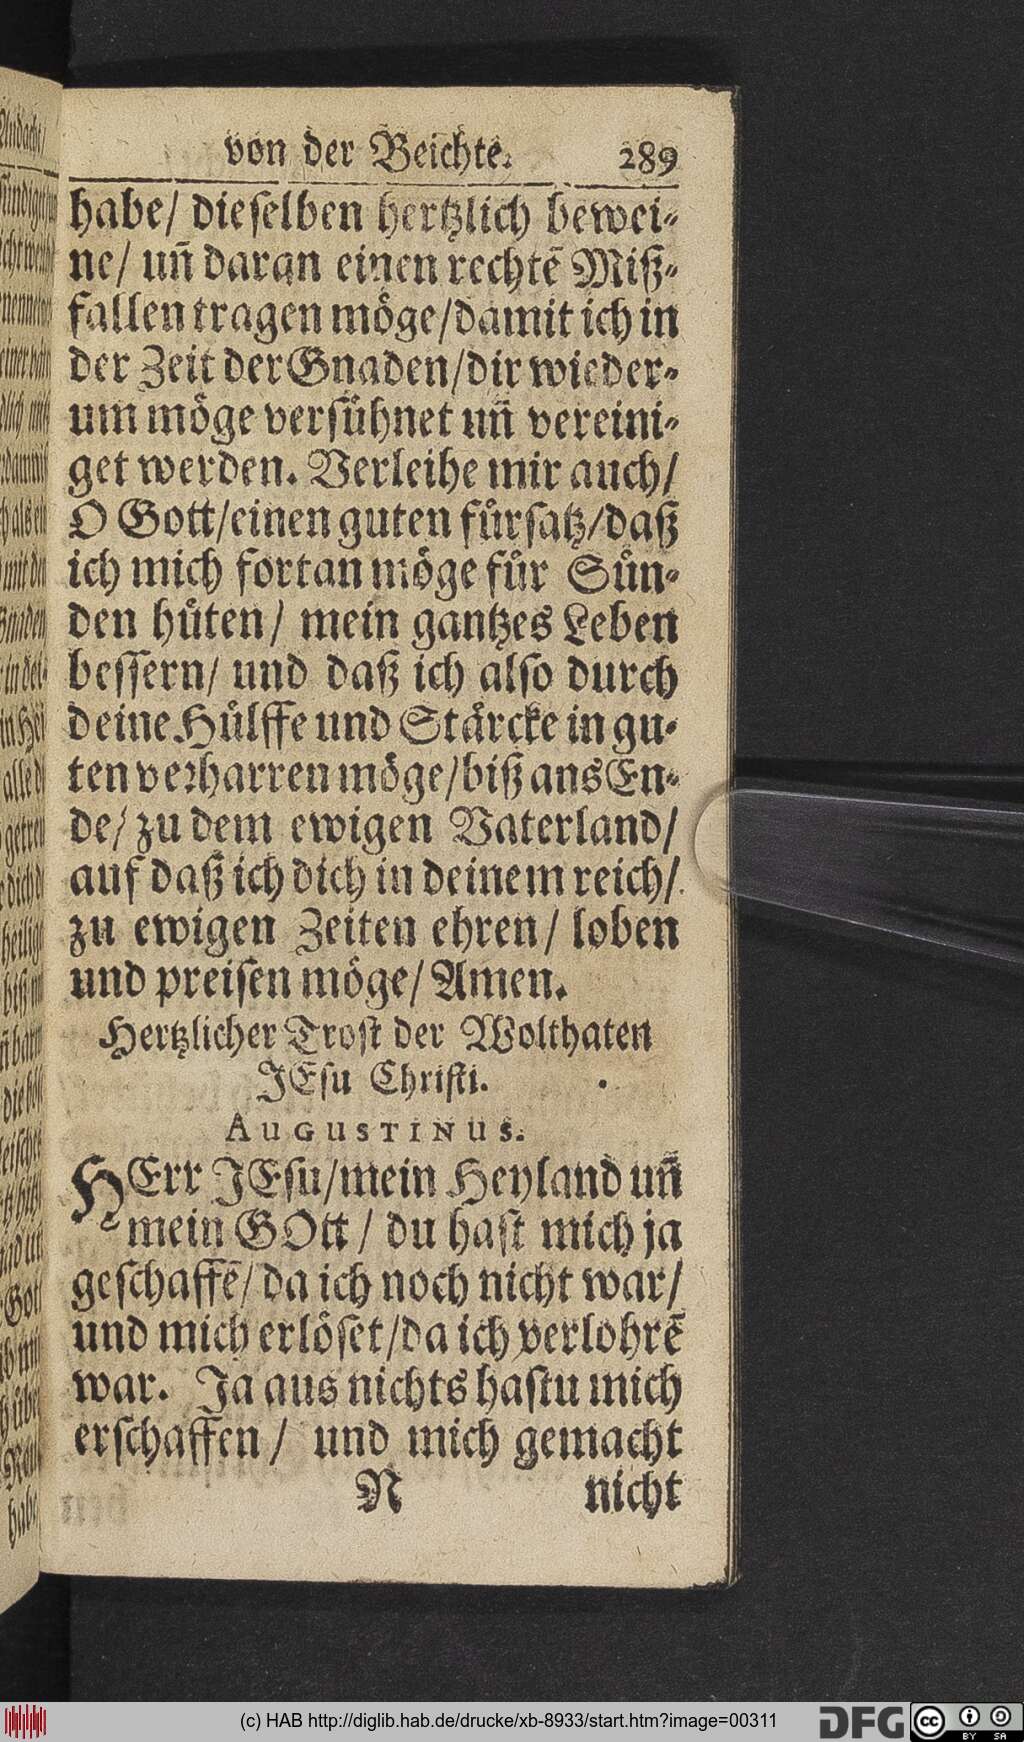 von der Beichte. 289
habe/ dieselben hertzlich bewei-
ne/ uñ daran einen rechtẽ Miß-
fallen tragen möge/damit ich in
der Zeit der Gnaden/dir wieder-
um möge versühnet uñ vereini-
get werden. Verleihe mir auch/
O Gott/einen guten fürsatz/daß
ich mich fortan möge für Sün-
den hüten/ mein gantzes Leben
bessern/ und daß ich also durch
deine Hülffe und Stärcke in gu-
ten verharren möge/biß ans En-
de/ zu dem ewigen Vaterland/
auf daß ich dich in deinem reich/
zu ewigen Zeiten ehren/ loben
und preisen möge/ Amen.
Hertzlicher Trost der Wolthaten
JEsu Christi.
AuGuSTINuS.
HErr JEsu/mein Heyland uñ
mein GOtt/ du hast mich ja
geschaffẽ/ da ich noch nicht war/
und mich erlöset/da ich verlohrẽ
war. Ja aus nichts hastu mich
erschaffen/ und mich gemacht
N nicht
(c) HAB http://diglib.hab.de/drucke/xb-8933/start.htm?image=00311
DFG
cc BY SA